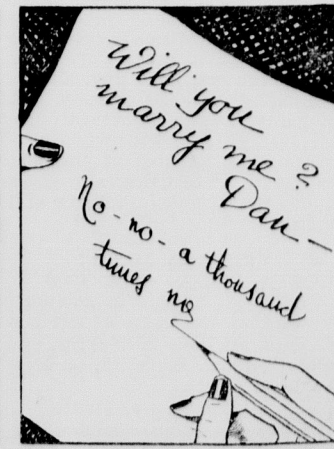 Will you
marry me?
Dan -
No - no - a thousand
times no